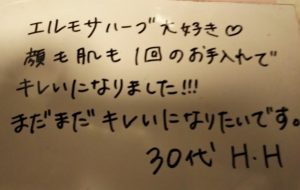 エルモサハーブ大好き♡
顔も肌も1回のお手入れで
キレいになりました!!!
まだまだキレいになりたいです。
30代 H.H